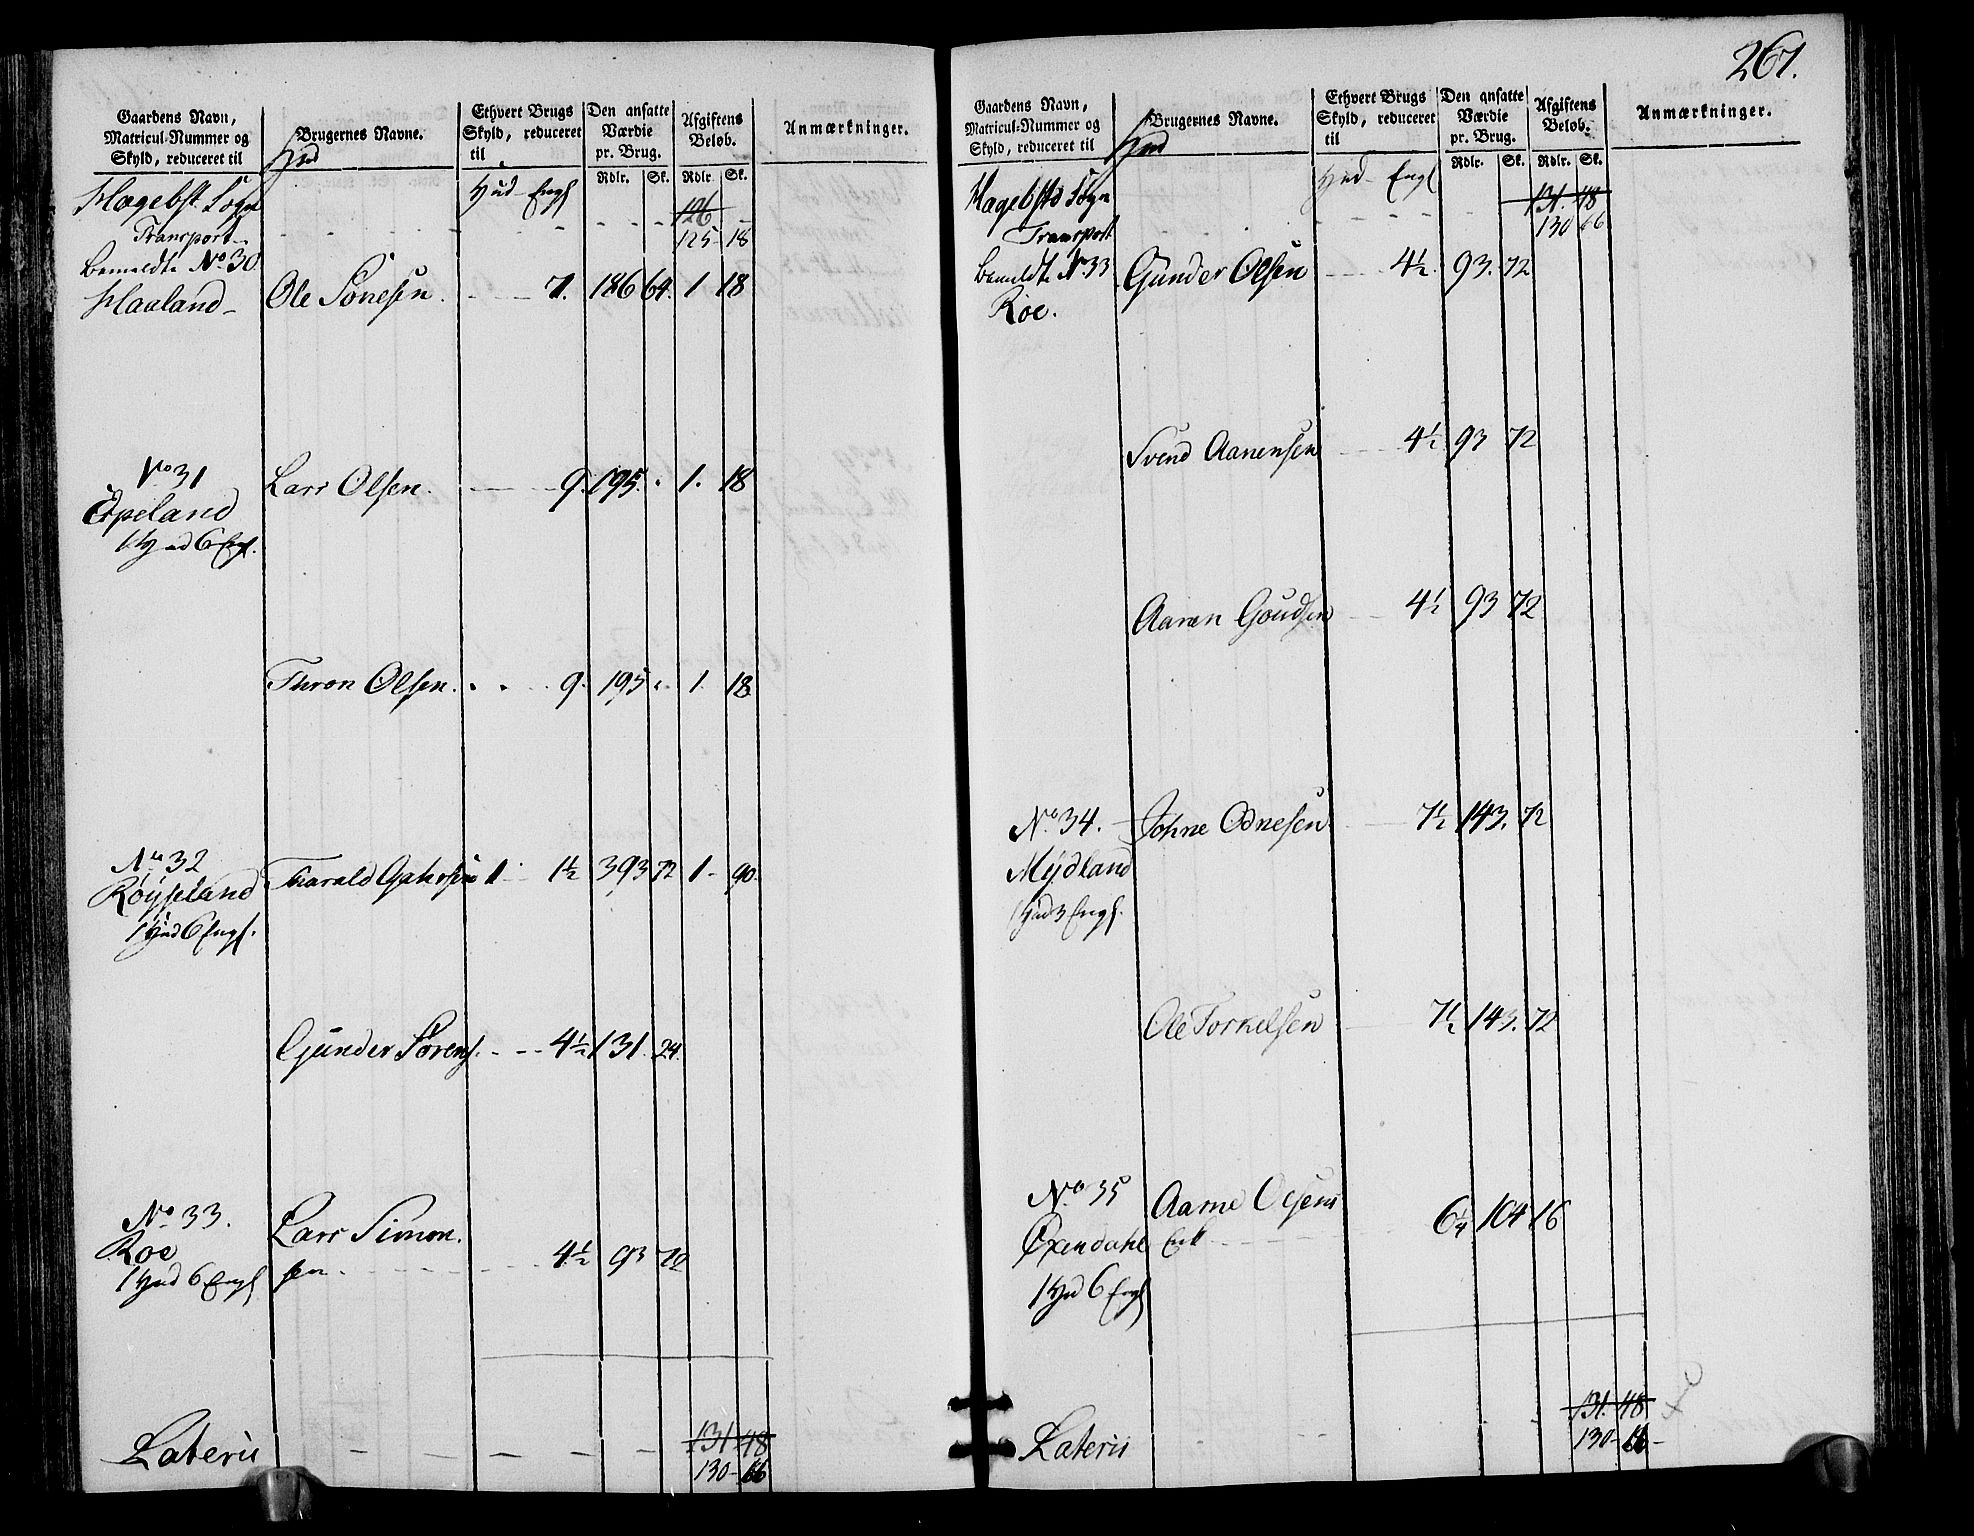 Gaardens Navn,
Matricul-Nummer og
Skyld, reduceret til
Hud
Brugernes Navne.
Ethvert Brugs
Skyld, reduceret
til
Den ansatte
Værdie
pr. Brug.
Afgiftens
Beløb.
Anmærkninger.
Rdlr. Sk. Rdlr. Sk.
Hægebst. Sogn Hud Engl 126
Transport 125 18
bemeldte No 30
Haaland Ole Sønesen 7. 186 64. 1 18
No 31
Espeland Lars Olsen. 9. 195. 1. 18
1 Hud 6 Engl.
Thron Olsen. 9. 195 1. 18
No 32
Röyseland Tharald 1 1½ 393 72 1 90
1 Hud 6 Engl.
Gunder Sørens. 4½ 131. 24.
No 33. Lars Simon-
Roe sen 4½ 93 72
1 Hud 6 Engl
131 48
Lateris 130 66
267.
Gaardens Navn,
Matricul-Nummer og
Skyld, reduceret til
Hud
Brugernes Navne.
Ethvert Brugs
Skyld, reduceret
til
Den ansatte
Værdie
pr. Brug.
Afgiftens
Beløb.
Anmærkninger.
Rdlr. Sk. Rdlr. Sk.
Hægebstd Sogn Hud Engl 131 48
Transport 130 66
bemeldte No 33 Gunder Olsen 4½. 93. 72
Roe.
Svend Aanensen 4½ 93 72
Aanen Goudsen 4½ 93 72
No 34. Johne Odnesen 7½ 143. 72
Mydland
1 Hud 3 Engl.
Ole Torkelsen 7½ 143. 72
No 35 Aarne Olsens
Oxendahl Enk 6¼ 104 16
1 Hud 6 Engl
131. 48
Lateris 130 66